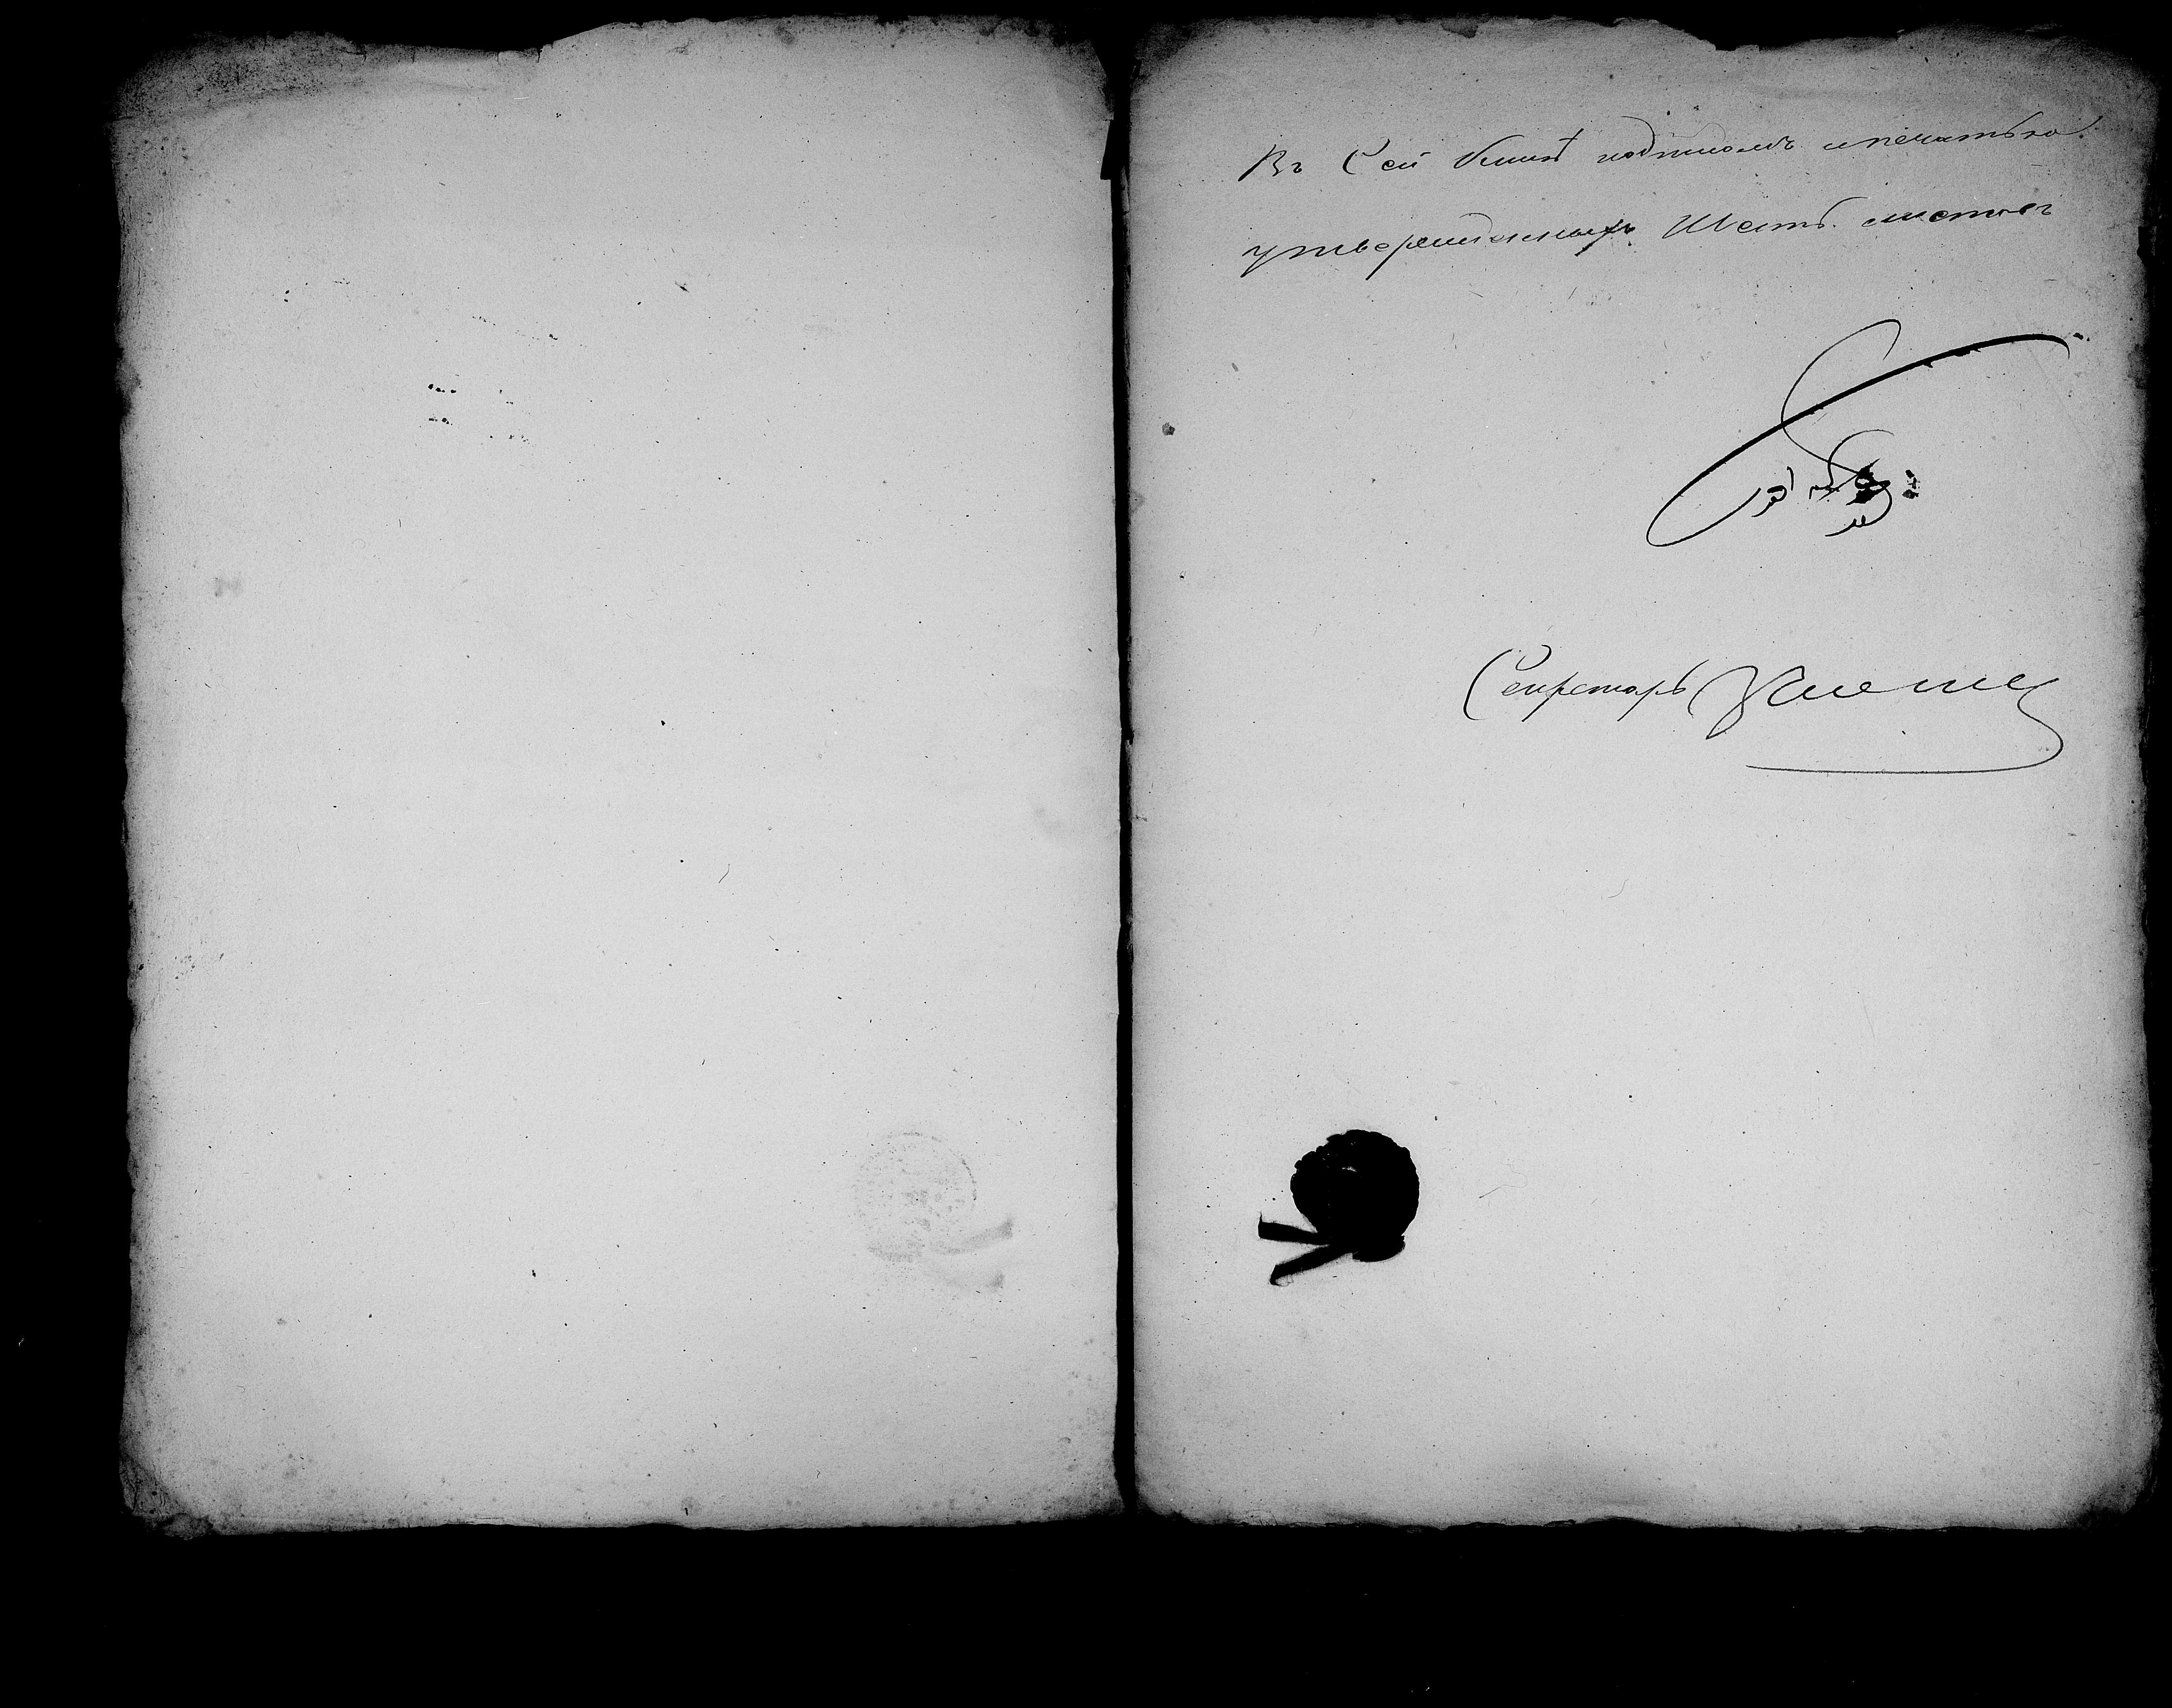 Въ Сей книгѣ подписомъ и печатью
утвержденныхъ Шесть листовъ
Секретарь